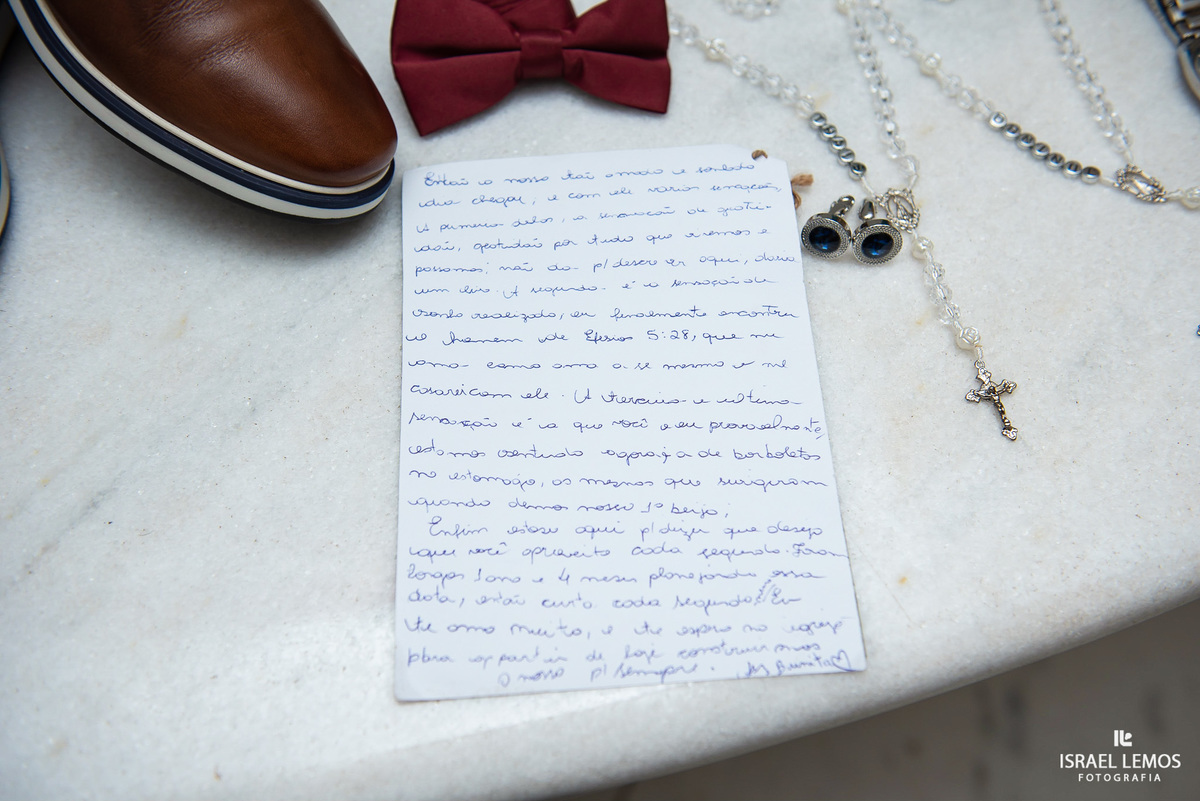 Então o nosso tão amado e sonhado
dia chegou, e com ele várias sensações,
A primeira delas, a sensação de grati-
dão, gratidão por tudo que vivemos e
passamos; não da p/ descrever aqui, daria
um livro. A segunda é a sensação de
sonho realizado, eu finalmente encontrei
o homem de Efésios 5:28, que me
ama como ama a se mesmo e me
casarei com ele. A terceira e última
sensação é a que você e eu provavelmente
estamos sentindo agora, a de borboletas
no estomago, as mesmas que surgiram
quando demos nosso 1º beijo;
Enfim estou aqui p/ dizer que desejo
que você aproveite cada segundo. Foram
longos 1 ano e 4 meses planejando essa
data, então curta cada segundo. Eu
te amo muito, e te espero na igreja
para appartir de hoje construirmos
o nosso p/ sempre. Bunita
ISRAEL LEMOS
FOTOGRAFIA